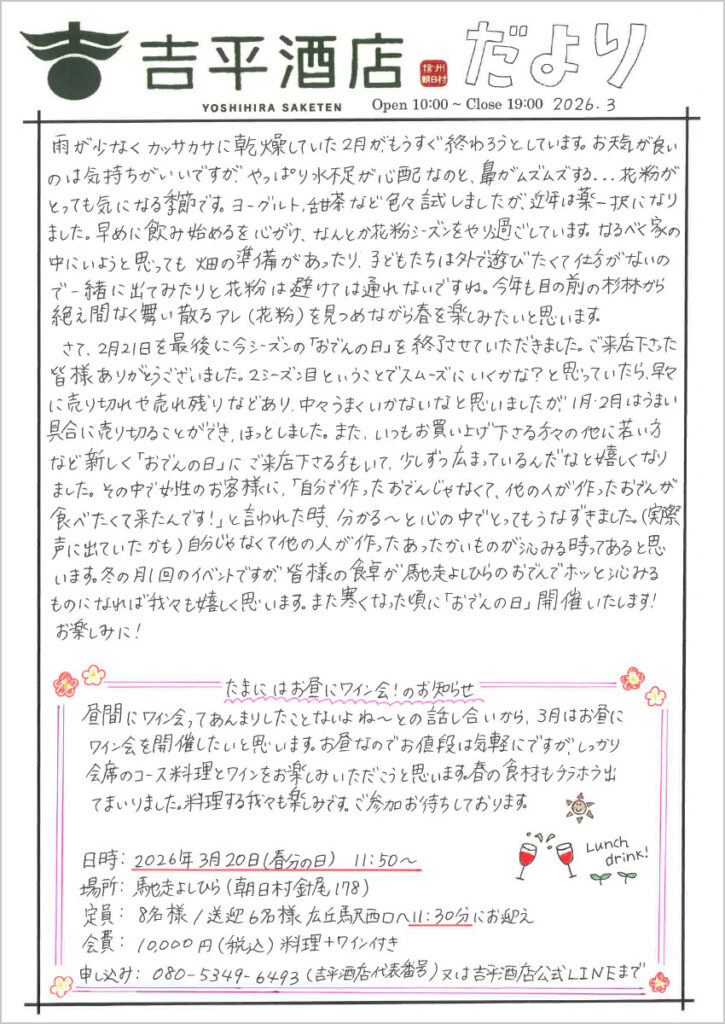 吉平酒店 信州朝日村 だより
YOSHIHIRA SAKETEN Open 10:00 ~ Close 19:00 2026.3
雨が少なくカッサカサに乾燥していた2月がもうすぐ終わろうとしています。お天気が良い
のは気持ちがいいですが、やっぱり水不足が心配なのと、鼻がムズムズする...花粉が
とっても気になる季節です。ヨーグルト、甜茶など色々試しましたが、近年は薬一択になり
ました。早めに飲み始めるを心がけ、なんとか花粉シーズンをやり過ごしています。なるべく家の
中にいようと思っても畑の準備があったり、子どもたちは外で遊びたくて仕方がないの
で一緒に出てみたりと花粉は避けては通れないですね。今年も目の前の杉林から
絶え間なく舞い散るアレ(花粉)を見つめながら春を楽しみたいと思います。
さて、2月21日を最後に今シーズンの「おでんの日」を終了させていただきました。ご来店下さった
皆様ありがとうございました。2シーズン目ということでスムーズにいくかな?と思っていたら、早々
に売り切れや売れ残りなどあり、中々うまくいかないなと思いましたが、1月・2月はうまい
具合に売り切ることができ、ほっとしました。また、いつもお買い上げ下さる方々の他に若い方
など新しく「おでんの日」にご来店下さる方もいて、少しずつ広まっているんだなと嬉しくなり
ました。その中で女性のお客様に、「自分で作ったおでんじゃなくて、他の人が作ったおでんが
食べたくて来たんです!」と言われた時、分かる〜と心の中でとってもうなずきました。(実際
声に出ていたかも)自分じゃなくて他の人が作ったあったかいものが沁みる時ってあると思
います。冬の月1回のイベントですが、皆様の食卓が馳走よしひらのおでんでホッと沁みる
ものになれば我々も嬉しく思います。また寒くなった頃に「おでんの日」開催いたします!
お楽しみに!
たまにはお昼にワイン会!のお知らせ
昼間にワイン会ってあんまりしたことないよね〜との話し合いから、3月はお昼に
ワイン会を開催したいと思います。お昼なのでお値段は気軽にですが、しっかり
会席のコース料理とワインをお楽しみいただこうと思います。春の食材もチラホラ出
てまいりました。料理する我々も楽しみです。ご参加お待ちしております。
日時: 2026年3月20日(春分の日) 11:50〜
Lunch
drink!
場所: 馳走よしひら(朝日村針尾178)
定員: 8名様/送迎6名様 広丘駅西口へ11:30分にお迎え
会費: 10,000円(税込)料理+ワイン付き
申し込み: 080-5349-6493(吉平酒店代表番号)又は吉平酒店公式LINEまで